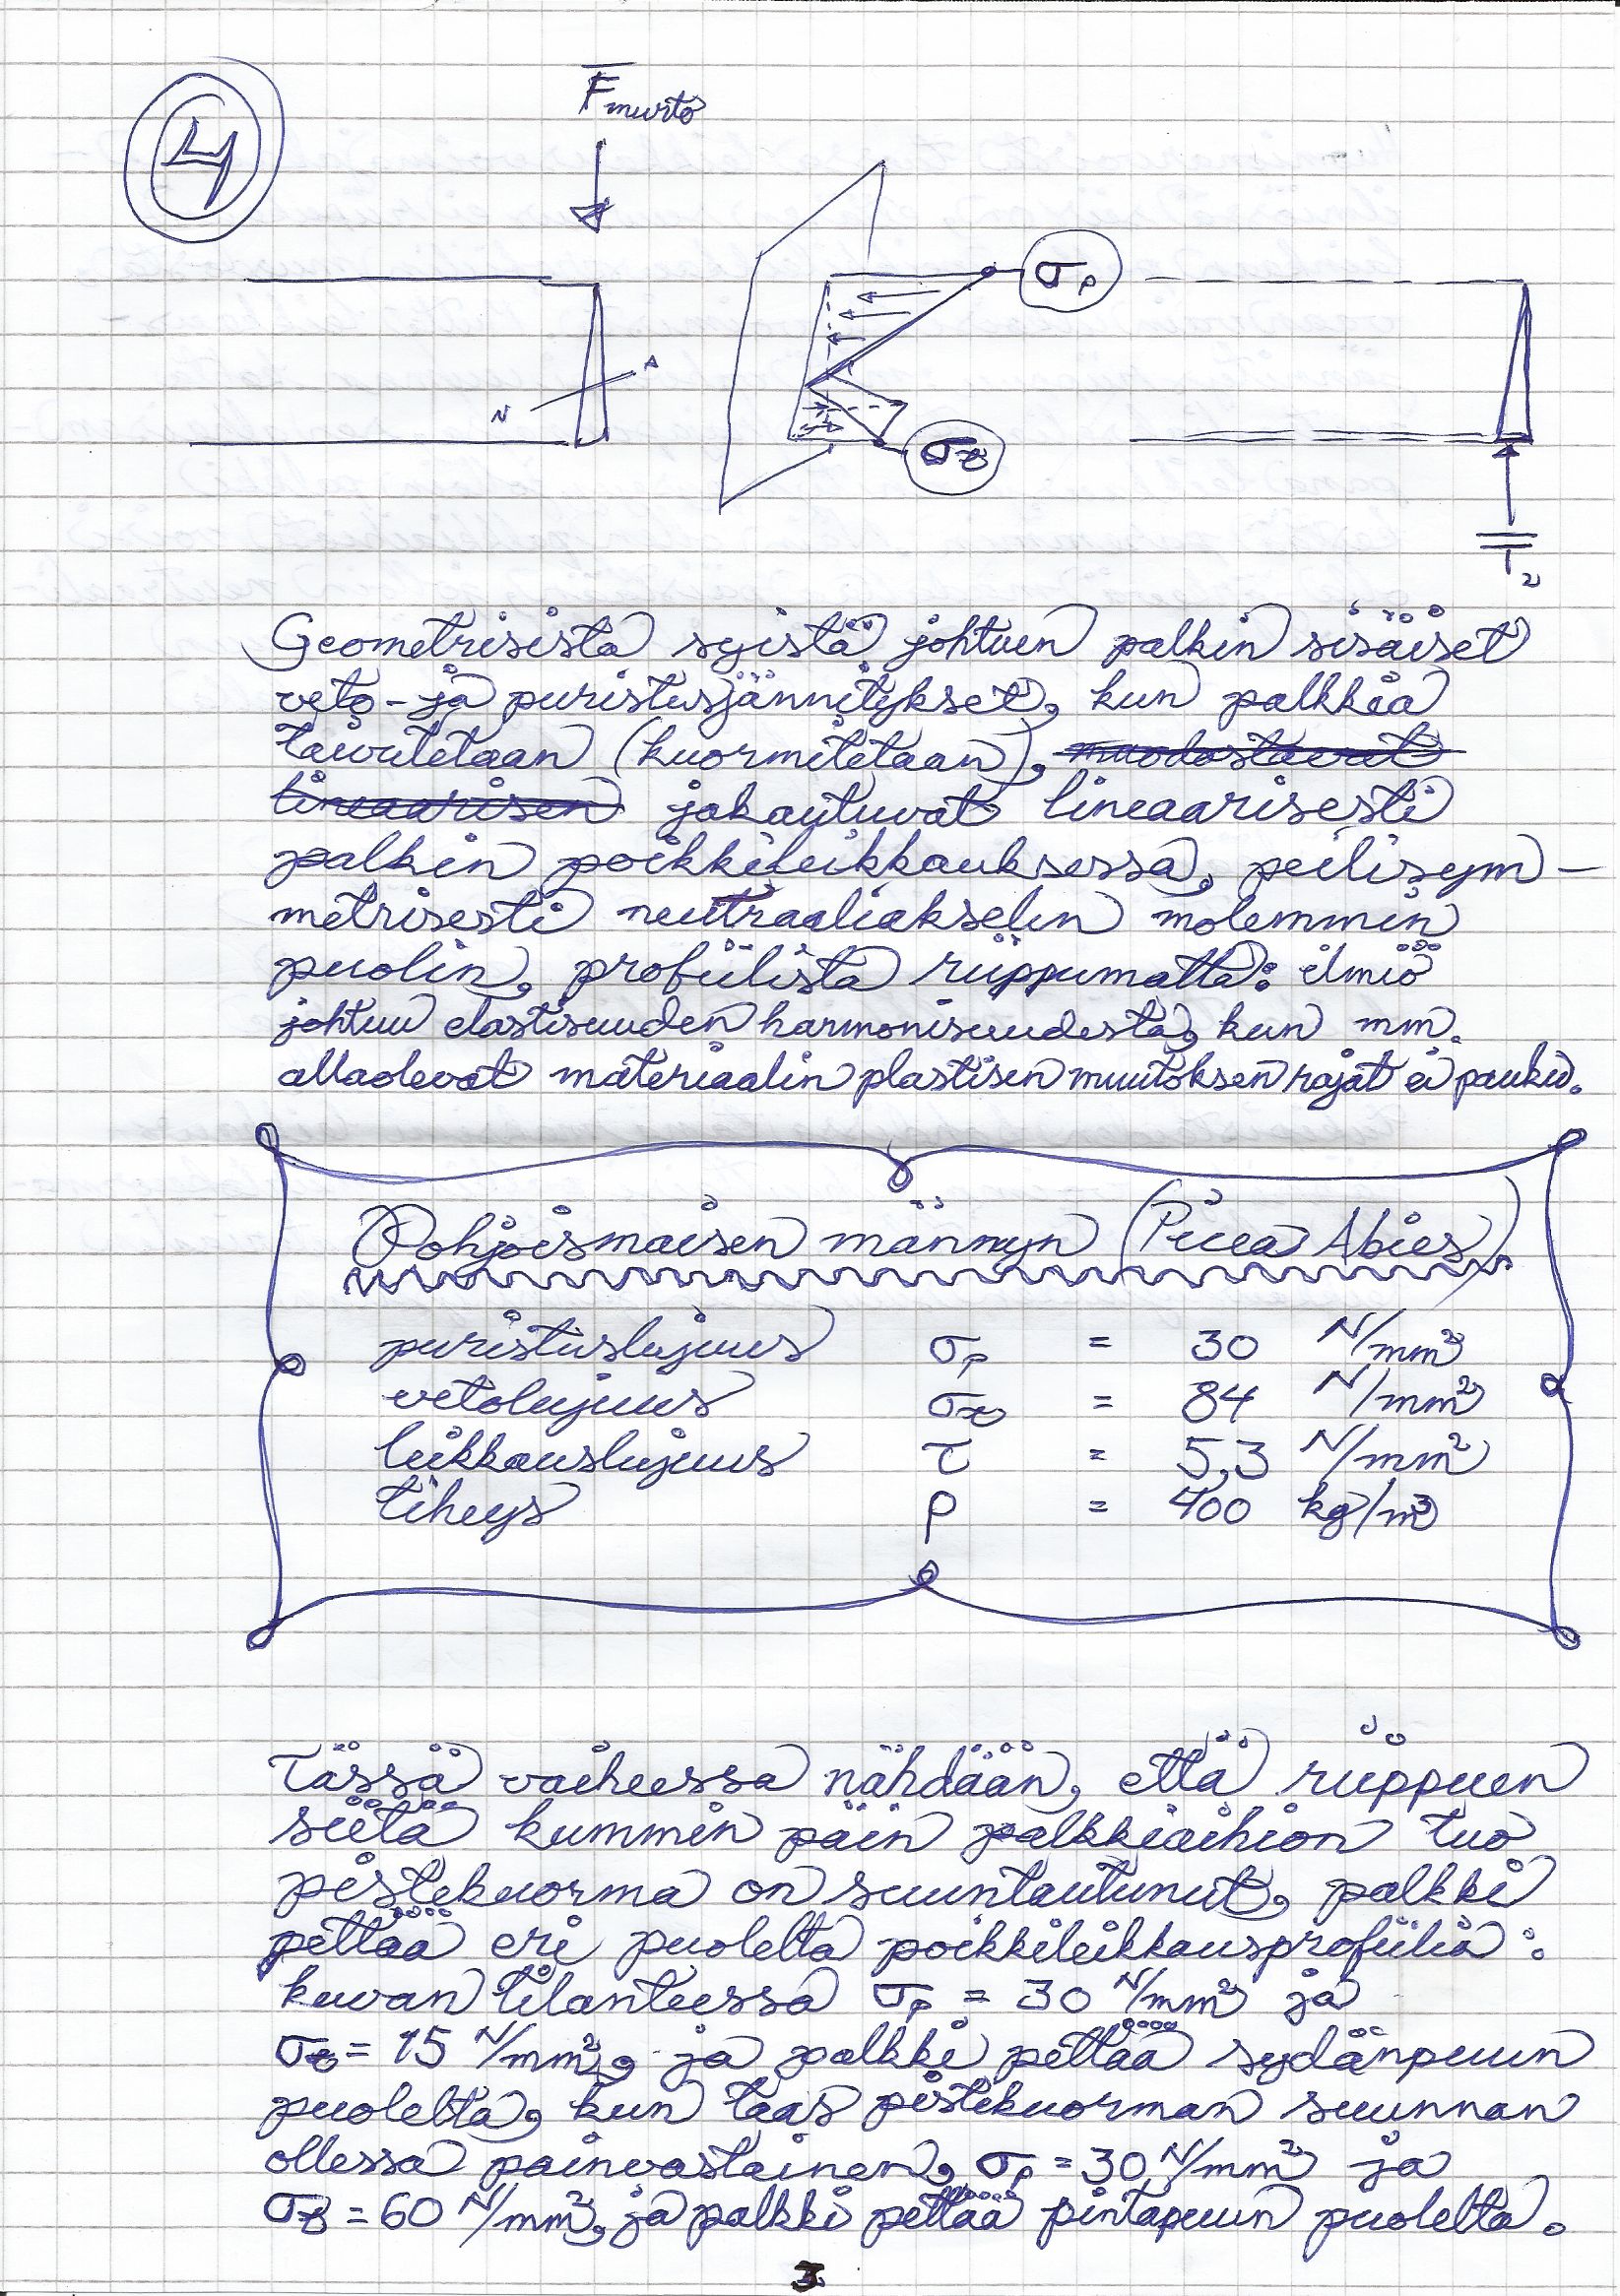 4
F murto
N
A
σp
σv
T2
Geometrisistä syistä johtuen palkin sisäiset
veto- ja puristusjännitykset, kun palkkia
taivutetaan (kuormitetaan), muodostavat
lineaarisen jakautuvat lineaarisesti
palkin poikkileikkauksessa, peilisym-
metrisesti neutraaliakselin molemmin
puolin, profiilista riippumatta: ilmiö
johtuu elastisuuden harmonisuudesta, kun mm.
allaolevat materiaalin plastisen muutoksen rajat ei pauku.
Pohjoismaisen männyn (Picea Abies)
puristuslujuus σp = 30 N/mm²
vetolujuus σv = 84 N/mm²
leikkauslujuus τ = 5,3 N/mm²
tiheys ρ = 400 kg/m³
Tässä vaiheessa nähdään, että riippuen
siitä kummin päin palkkiaihion tuo
pistekuorma on suuntautunut, palkki
pettää eri puolelta poikkileikkausprofiilia:
kuvan tilanteessa σp = 30 N/mm² ja
σv = 15 N/mm², ja palkki pettää sydänpuun
puolelta, kun taas pistekuorman suunnan
ollessa päinvastainen, σp = 30 N/mm² ja
σv = 60 N/mm², ja palkki pettää pintapuun puolelta.
3